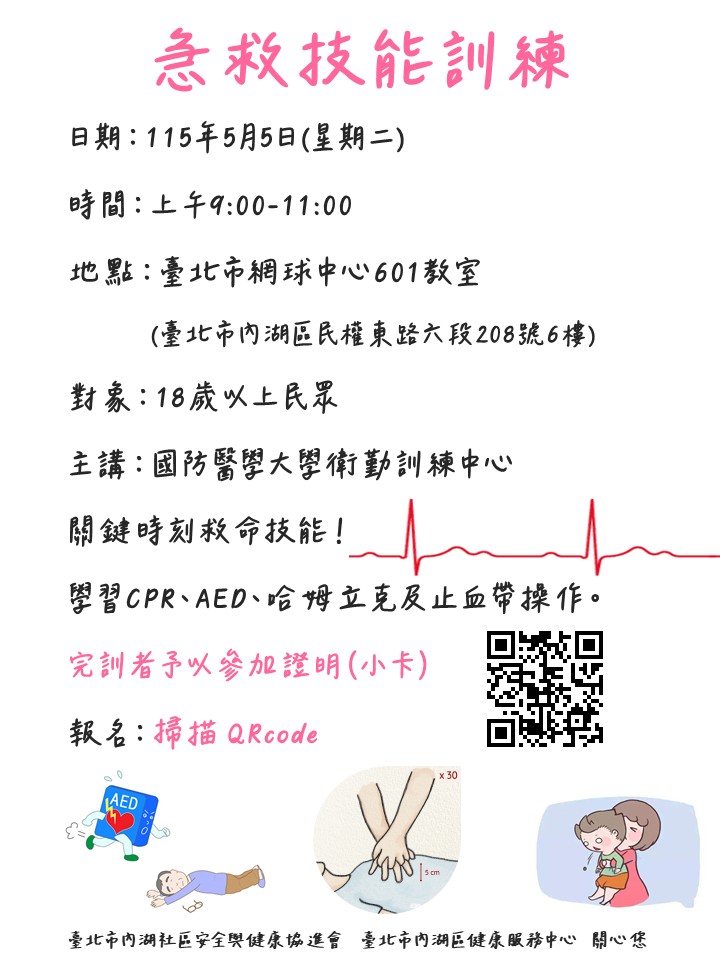 急救技能訓練
日期：115年5月5日(星期二)
時間：上午9:00-11:00
地點：臺北市網球中心601教室
(臺北市內湖區民權東路六段208號6樓)
對象：18歲以上民眾
主講：國防醫學大學衛勤訓練中心
關鍵時刻救命技能！
學習CPR、AED、哈姆立克及止血帶操作。
完訓者予以參加證明(小卡)
報名：掃描 QRcode
AED
x 30
5 cm
臺北市內湖社區安全與健康協進會 臺北市內湖區健康服務中心 關心您